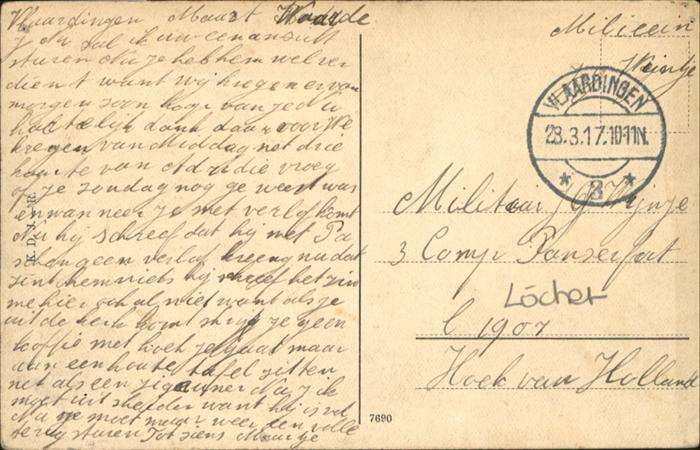 Vlaardingen Maart Waarde
J nu zal ik uw een ansicht
sturen dat je hebt hem wel ver
dient want wij kregen er van
morgen zoon van je
hartelijk dank daar voor We
kregen van Middag net drie
van Adri die vroeg
of je zondag nog ge weest was
en wanneer je met verlof komt
hij schreef dat hij met Pa
schen geen verlof kreeg nu dat
zint hem niets hij schreef het zin
me hier ook al niet want als je
uit de kerk komt krijg je geen
koffie met koek je gaat maar
aan een houten tafel zitten
net als een zigeuner Nu J ik
moet uit sheiden want hij is vol
Nu je moet maar weer een volle
terug sturen Tot ziens Maartje
K.D.V.
7690
Milicien
VLAARDINGEN
28.3.17.10-11N.
* 2 *
Militair J G
3 Comp Pantserfort
Löcher
l 1907
Hoek van Holland